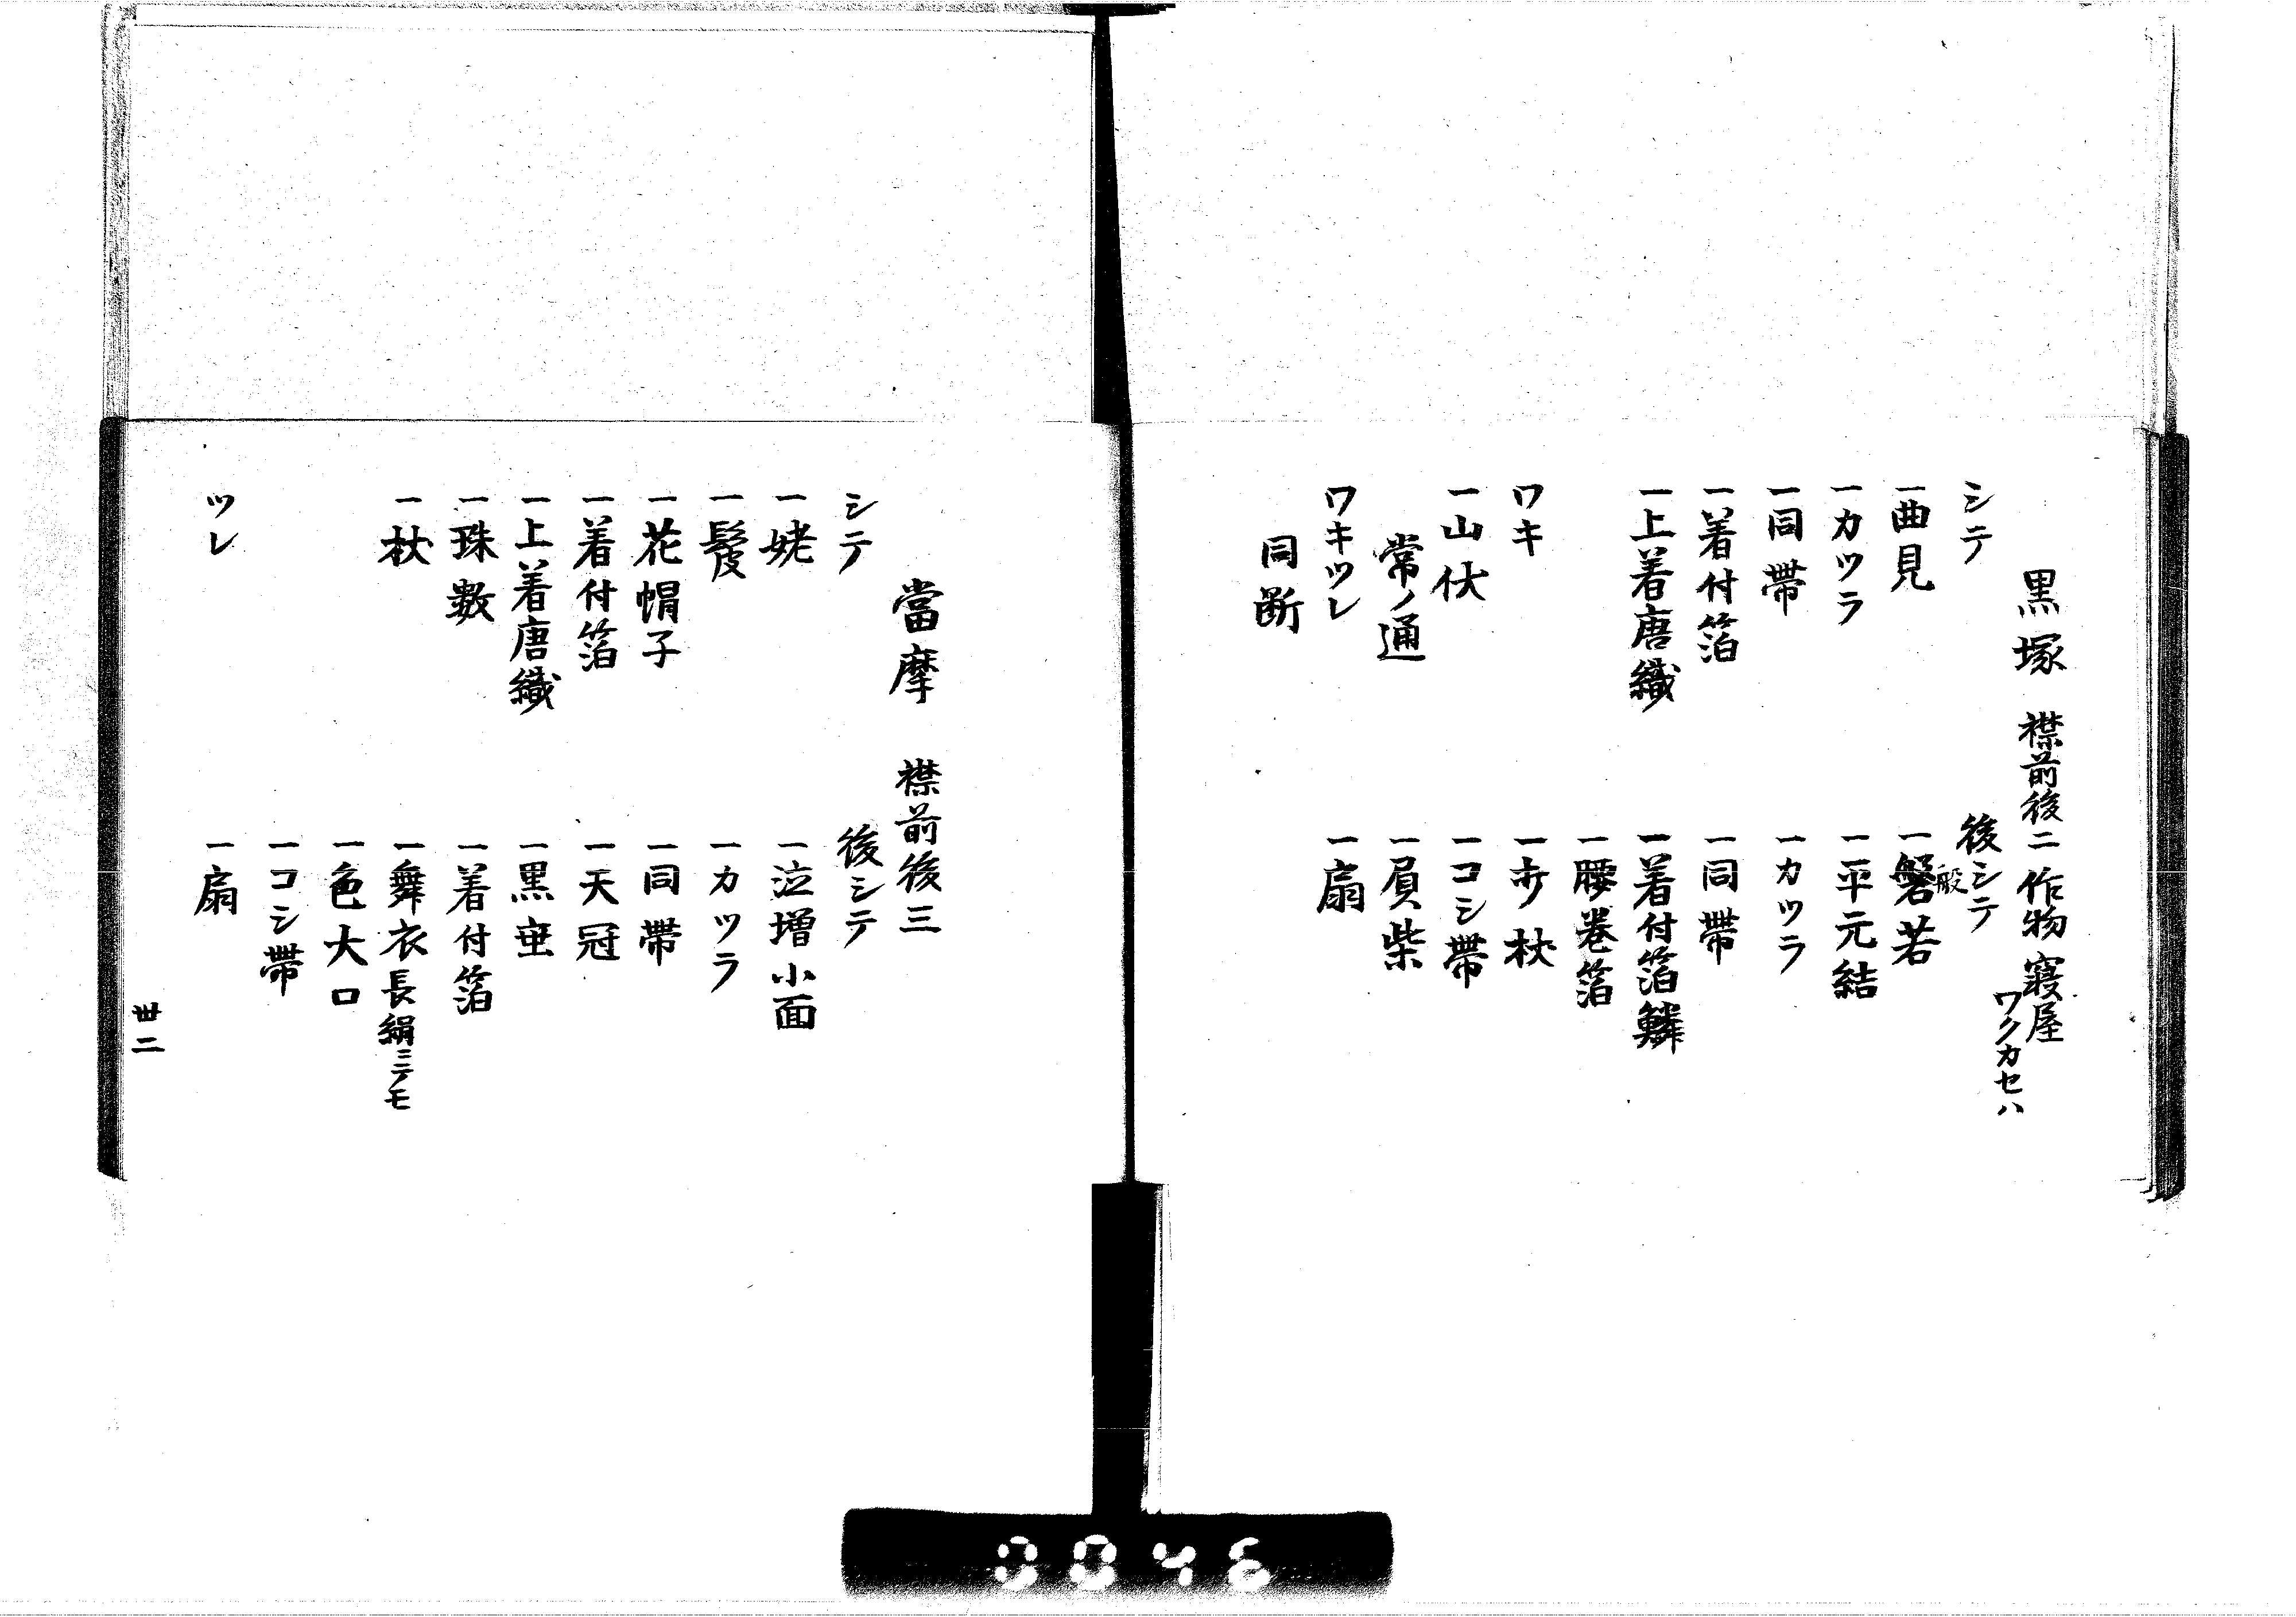 黒塚　襟前後二作物寝屋
ワクカセハ
シテ
一曲見
一カツラ
一同帯
一着付箔
一上着唐織
ワキ
一山伏
常ノ通
ワキツレ
同断
後シテ
一磐若
般
一平元結
一カツラ
一同帯
一着付箔鱗
一腰巻箔
一打杖
一コシ帯
一負柴
一扇
當摩　襟前後三
シテ
一姥
一髪
一花帽子
一着付箔
一上着唐織
一珠數
一杖
ツレ
後シテ
一泣増小面
一カツラ
一同帯
一天冠
一黒垂
一着付箔
一舞衣長絹ニテモ
一色大口
一コシ帯
一扇
丗二